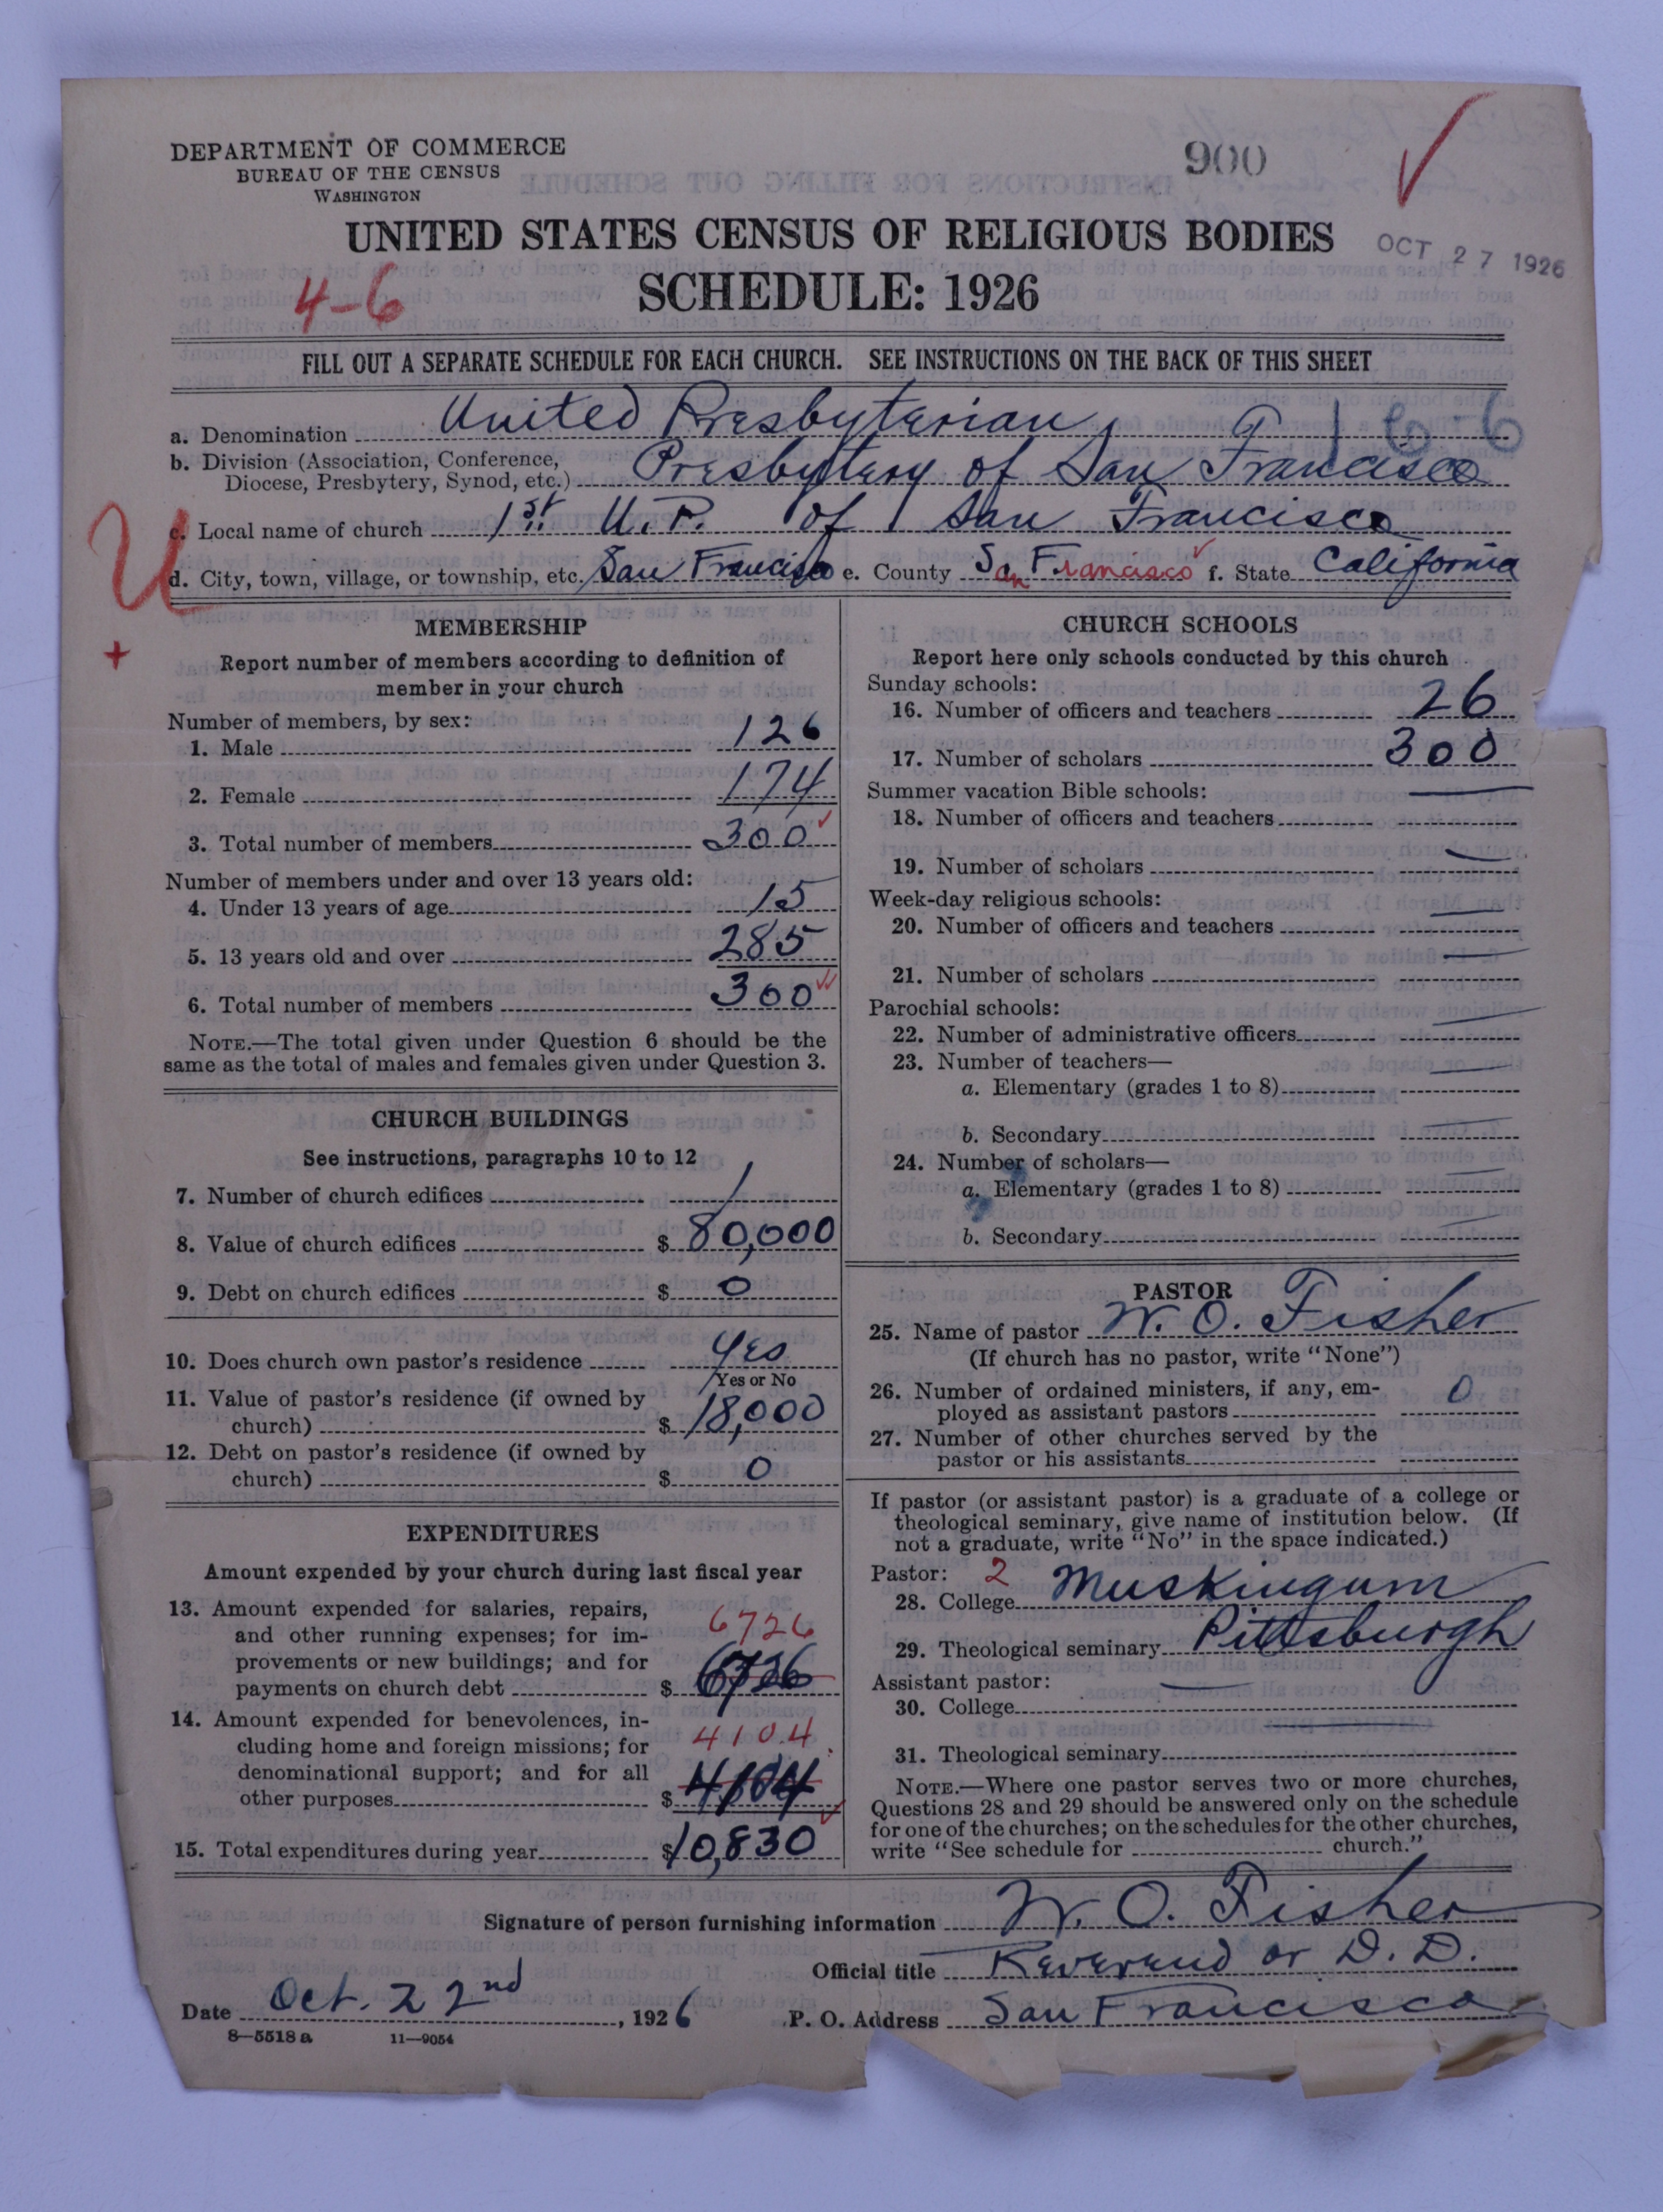 DEPARTMENT OF COMMERCE
BUREAU OF THE CENSUS
WASHINGTON
900
UNITED STATES CENSUS OF RELIGIOUS BODIES
OCT 27 1926
4-6
SCHEDULE: 1926
FILL OUT A SEPARATE SCHEDULE FOR EACH CHURCH. SEE INSTRUCTIONS ON THE BACK OF THIS SHEET
a. Denomination United Presbyterian 166
b. Division (Association, Conference, Diocese, Presbytery, Synod, etc.) Presbytery of San Francisco
U
c. Local name of church 1st U. P. of San Francisco
d. City, town, village, or township, etc. San Francisco e. County San Francisco f. State California
+
MEMBERSHIP
Report number of members according to definition of
member in your church
Number of members, by sex:
1. Male 126
2. Female 174
3. Total number of members 300
Number of members under and over 13 years old:
4. Under 13 years of age 15
5. 13 years old and over 285
6. Total number of members 300
NOTE.—The total given under Question 6 should be the
same as the total of males and females given under Question 3.
CHURCH BUILDINGS
See instructions, paragraphs 10 to 12
7. Number of church edifices 1
8. Value of church edifices $ 80,000
9. Debt on church edifices $ 0
10. Does church own pastor's residence Yes
Yes or No
11. Value of pastor's residence (if owned by
church) $ 18,000
12. Debt on pastor's residence (if owned by
church) $ 0
EXPENDITURES
Amount expended by your church during last fiscal year
13. Amount expended for salaries, repairs,
and other running expenses; for im-
provements or new buildings; and for
payments on church debt $ 6726
6726
14. Amount expended for benevolences, in-
cluding home and foreign missions; for
denominational support; and for all
other purposes $ 4104
4104
15. Total expenditures during year $10,830
CHURCH SCHOOLS
Report here only schools conducted by this church
Sunday schools:
16. Number of officers and teachers 26
17. Number of scholars 300
Summer vacation Bible schools:
18. Number of officers and teachers
19. Number of scholars
Week-day religious schools:
20. Number of officers and teachers
21. Number of scholars
Parochial schools:
22. Number of administrative officers
23. Number of teachers—
a. Elementary (grades 1 to 8)
b. Secondary
24. Number of scholars—
a. Elementary (grades 1 to 8)
b. Secondary
PASTOR
25. Name of pastor W. O. Fisher
(If church has no pastor, write "None")
26. Number of ordained ministers, if any, em-
ployed as assistant pastors 0
27. Number of other churches served by the
pastor or his assistants
If pastor (or assistant pastor) is a graduate of a college or
theological seminary, give name of institution below. (If
not a graduate, write "No" in the space indicated.)
Pastor: 2
28. College Muskingum
29. Theological seminary Pittsburgh
Assistant pastor:
30. College
31. Theological seminary
NOTE.—Where one pastor serves two or more churches,
Questions 28 and 29 should be answered only on the schedule
for one of the churches; on the schedules for the other churches,
write "See schedule for church."
Signature of person furnishing information W. O. Fisher
Official title Reverend or D. D.
Date Oct. 22nd, 1926 P. O. Address San Francisco
8—5518 a 11—9054